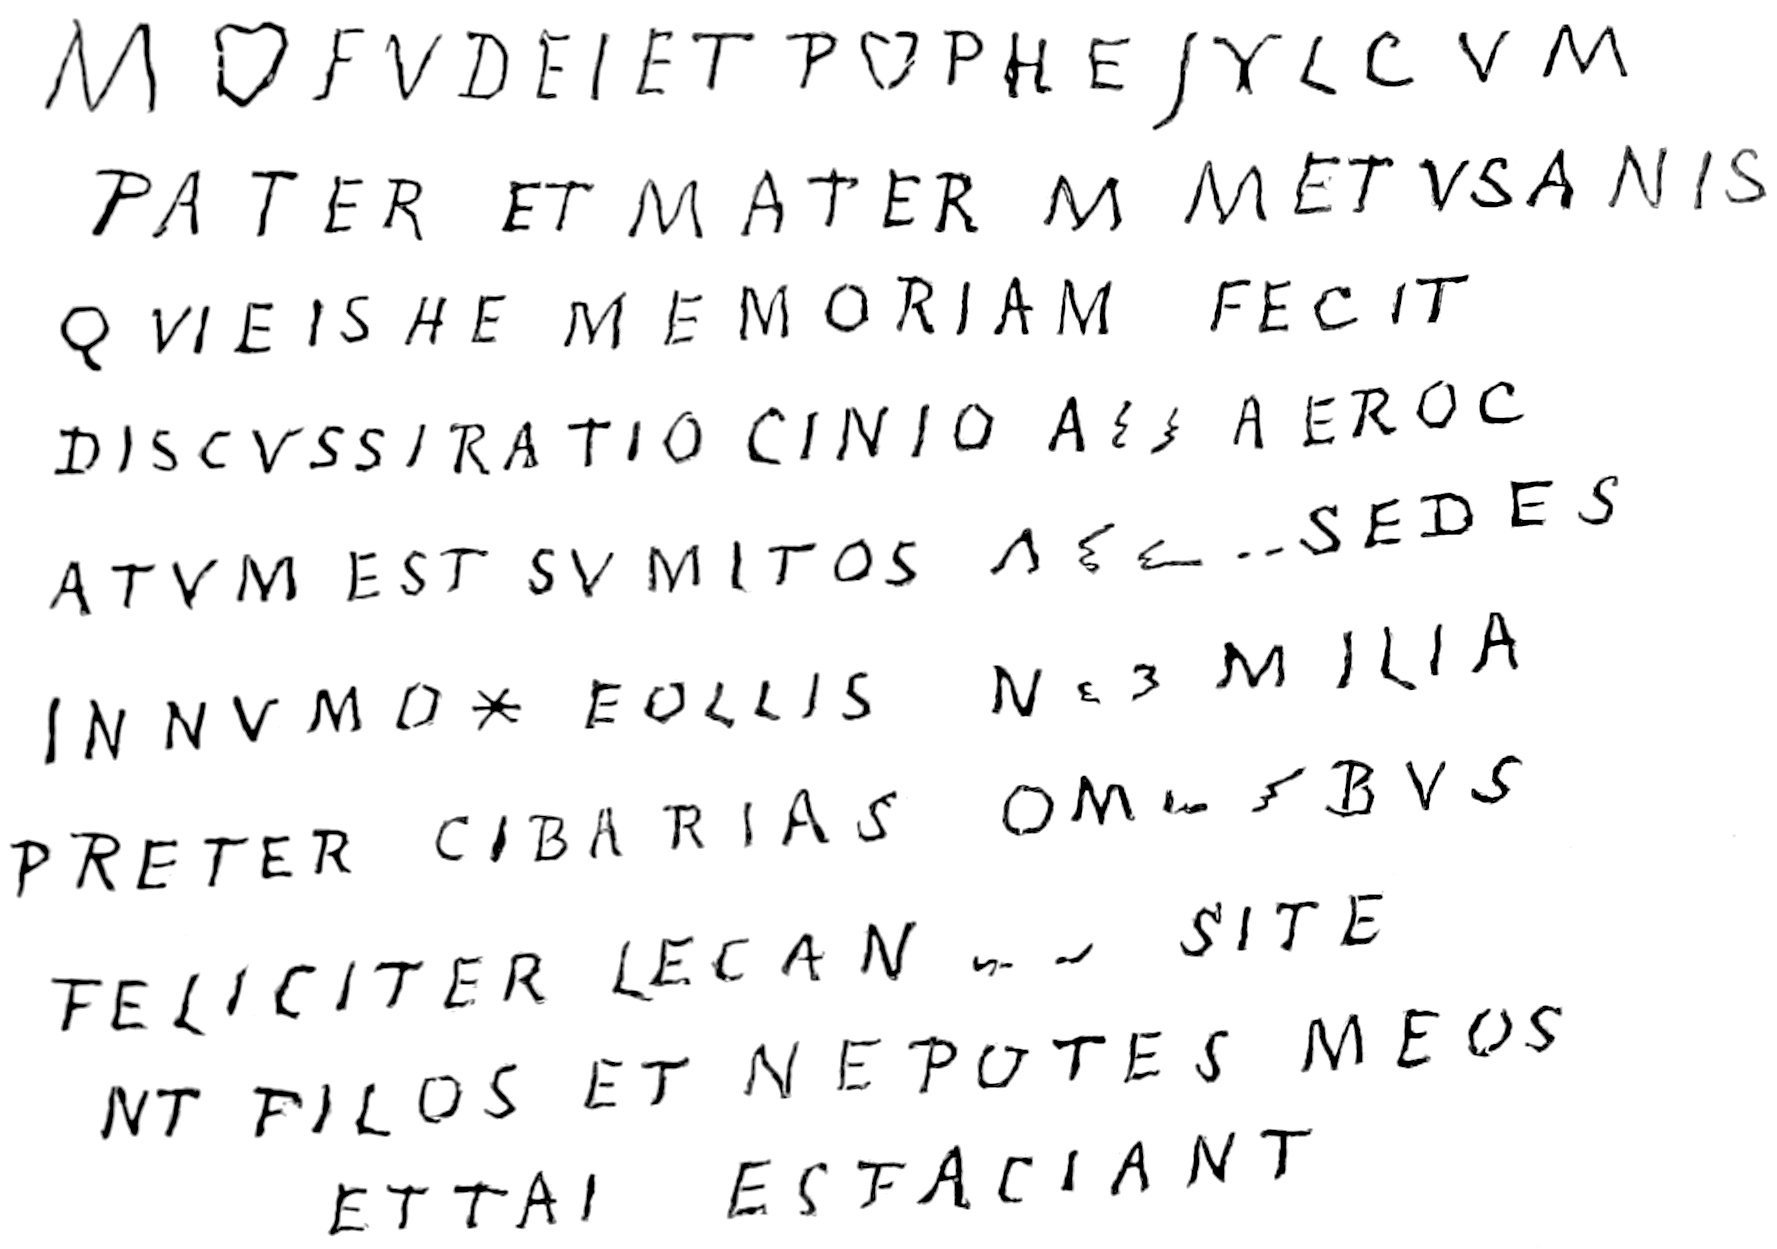 M O FVDEIET POPHE SYLCVM
PATER ET MATER M METVSANIS
QVIEISHE MEMORIAM FECIT
DISCVSSIRATIOCINIO A AEROC
ATVM EST SVMITOS SEDES
INNVMO* EOLLIS N MILIA
PRETER CIBARIAS OM BVS
FELICITER LECAN SITE
NT FILOS ET NEPOTES MEOS
ETTAI ESFACIANT